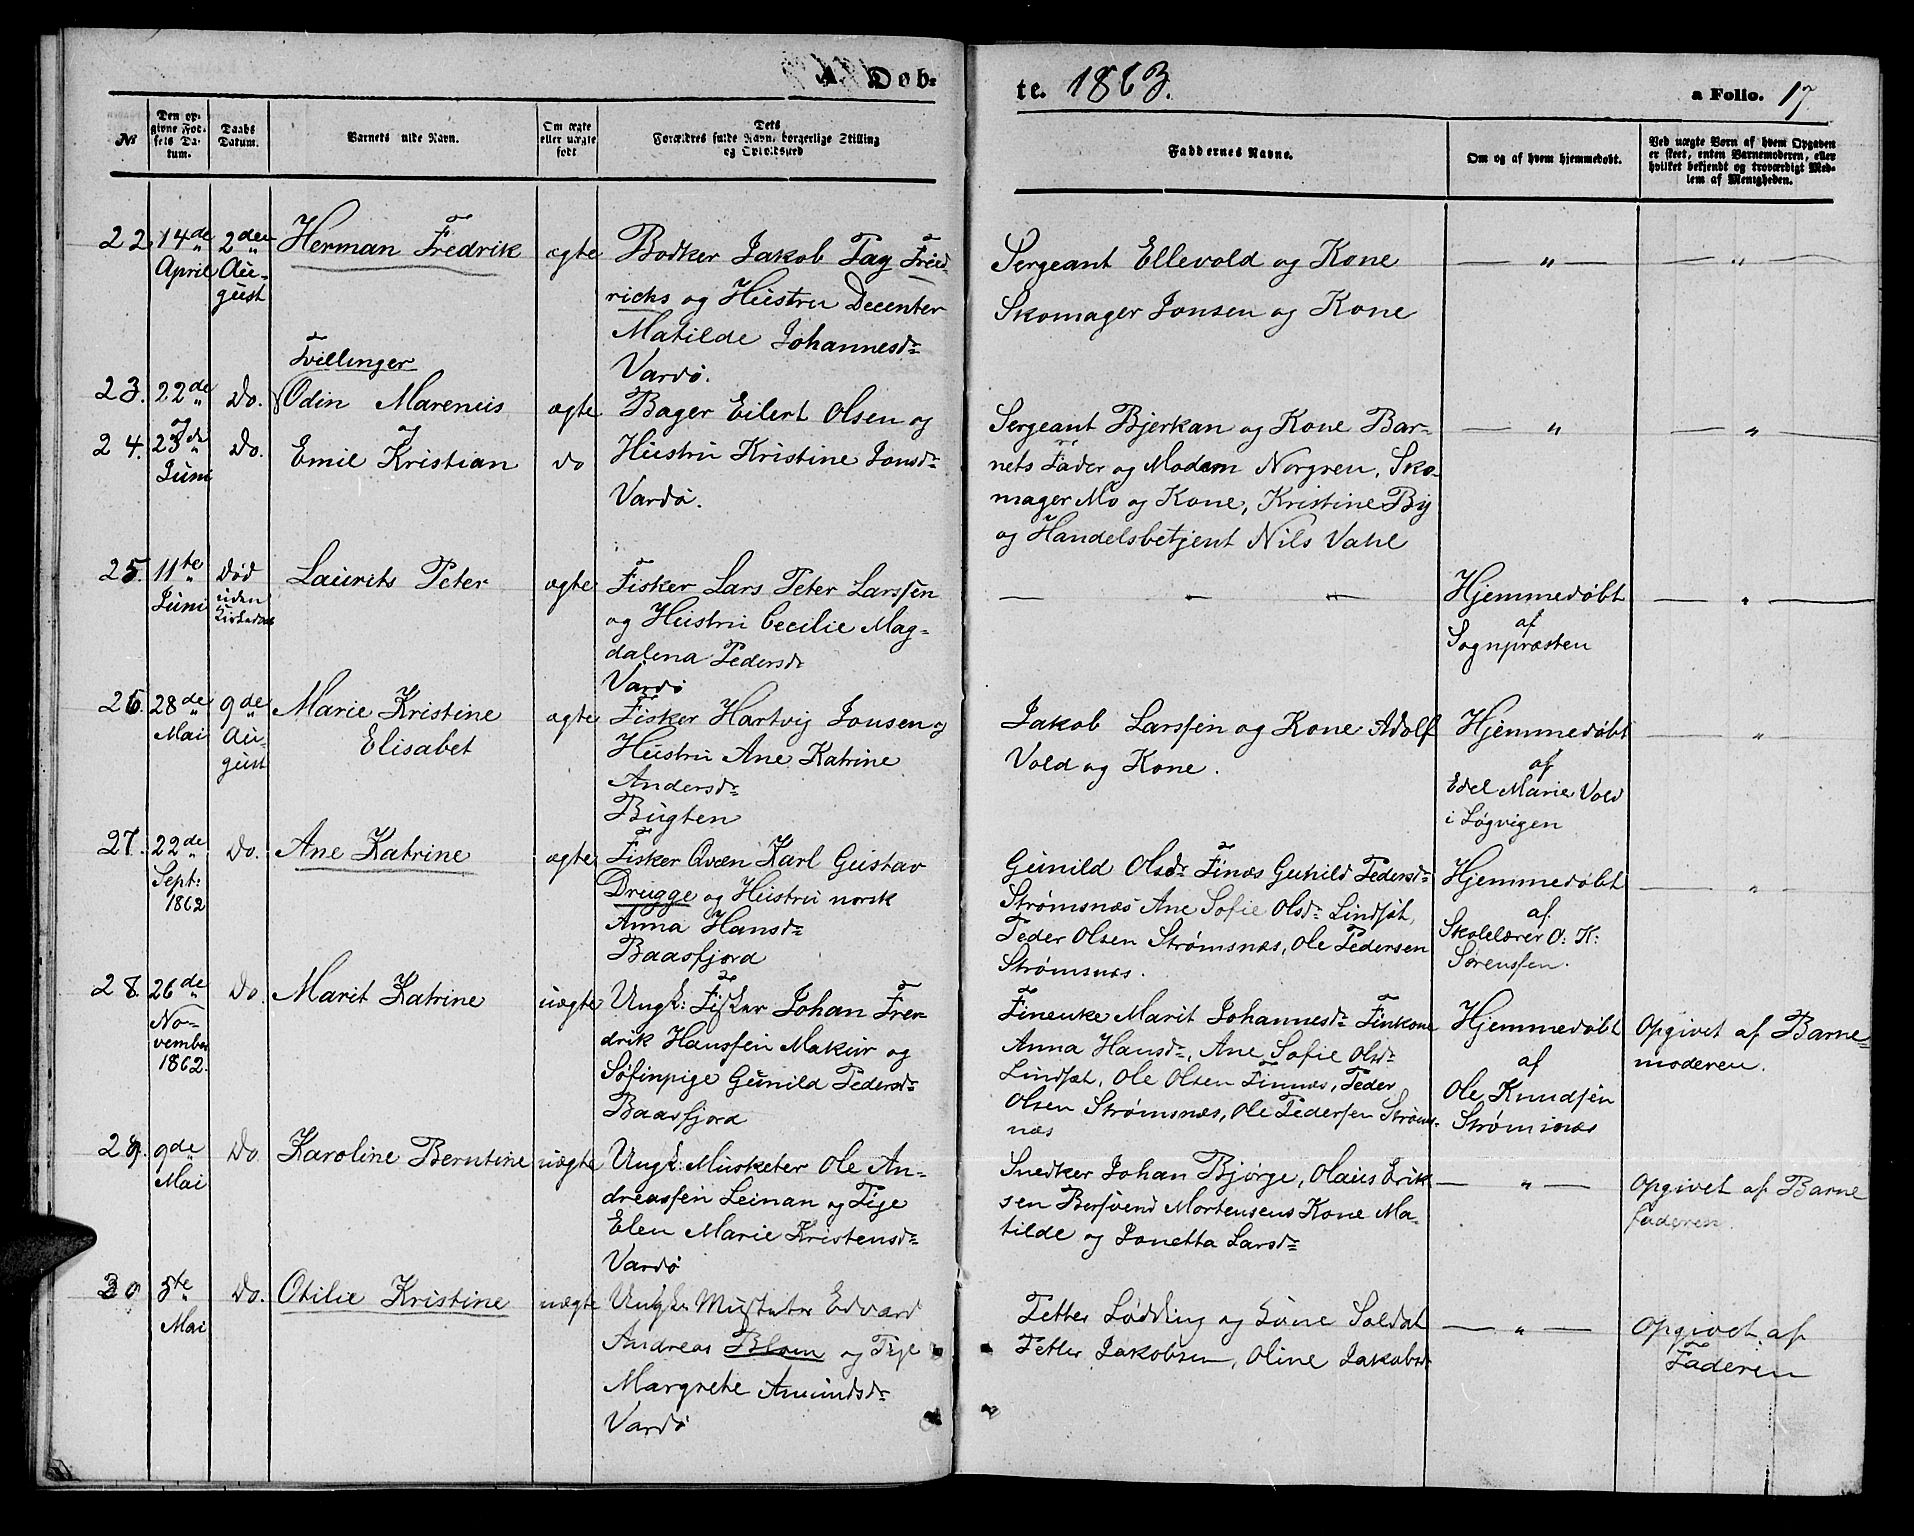 A. Døb-
te. 1863. a Folio. 17
№
Den op-
givne Fød-
sels Da-
tum.
Daabs
Datum.
Barnets fulde Navn.
Om ægte
eller uægte
født
Dets
Forældres fulde Navn, borgerlige Stilling
og Opholdssted
Faddernes Navne.
Om og af hvem hjemmedøbt.
Ved uægte Børn af hvem Opgaven
er skeet, enten Barnemoderen, eller
hvilket bekjendt og troværdigt Med-
lem af Menigheden.
22. 14de April
2den Au-
gust
Herman Fredrik
ægte
Bødker Jakob Fag Fried-
richs og Hustru Decenter
Matilde Johannesdr
Vardø.
Sergeant Ellevold og Kone
Skomager Jonsen og Kone
— " —
— " —
Tvillinger
23. 22de
Do.
Odin Marenius
og
ægte
Bager Eilert Olsen og
24. 23de
Juni
Do.
Emil Kristian
do
Hustru Kristine Jonsdr
Vardø.
Sergeant Bjerkan og Kone Bar-
nets Fader og Madam Norgren, Sko-
mager Mo og Kone, Kristine By
og Handelsbetjent Nils Vahl
— " —
— " —
25. 11te
Juni
Død
uden
Kirkedaab
Laurits Peter
ægte
Fisker Lars Peter Larssen
og Hustru Cecilie Mag-
dalena Pedersdr
Vardø
— " — " —
Hjemmedøbt
af
Sognpræsten
— " —
26. 28de
Mai
9de
Au-
gust
Marie Kristine
Elisabet
ægte
Fisker Hartvig Jonsen og
Hustru Ane Katrine
Andersdr
Bugten
Jakob Larssen og Kone Adolf
Vold og Kone.
Hjemmedøbt
af
Edel Marie Vold
i Løgvigen
— " —
27. 22de
Sept:
1862
Do.
Ane Katrine
ægte
Fisker Qvæn Karl Gustav
Drugge og Hustru norsk
Anna Hansdr
Baasfjord
Gunild Olsdr Finæs Gunild Pedersdr
Strømsnæs Ane Sofie Olsdr Lindsøt,
Peder Olsen Strømsnæs, Ole Pedersen
Strømsnæs.
Hjemmedøbt
af
Skolelærer O: K:
Sørenssen.
— " —
28. 26de
No-
vember
1862.
Do.
Marit Katrine
uægte
Ungk: Fisker Johan Fre-
drik Hanssen Makur og
Søfinpige Gunild Pedersdr
Baasfjord
Finenke Marit Johannesdr Finkone
Anna Hansdr, Ane Sofie Olsdr
Lindsøt, Ole Olsen Finnæs, Peder
Olsen Strømsnæs, Ole Pedersen Strøms-
næs
Hjemmedøbt
af
Ole Knudsen
Strømsnæs
Opgivet af Barne-
moderen.
29. 9de
Mai
Do
Karoline Berntine
uægte
Ungk: Musketer Ole An-
dreassen Leinan og Pige
Elen Marie Kristensdr
Vardø
Snedker Johan Bjørge, Olaus Erik-
sen Bersvend Mortensens Kone Ma-
tilde og Jonetta Larsdr
— " —
Opgivet af Barne
faderen.
30 5te
Mai
Do.
Otilie Kristine
uægte
Ungk: Musketer Edvard
Andreas Blom og Pige
Margrete Amundsdr
Vardø
Petter Lødding og Kone Soldat
Petter Jakobsen, Oline Jakobsdr
— " —
Opgivet af
Faderen